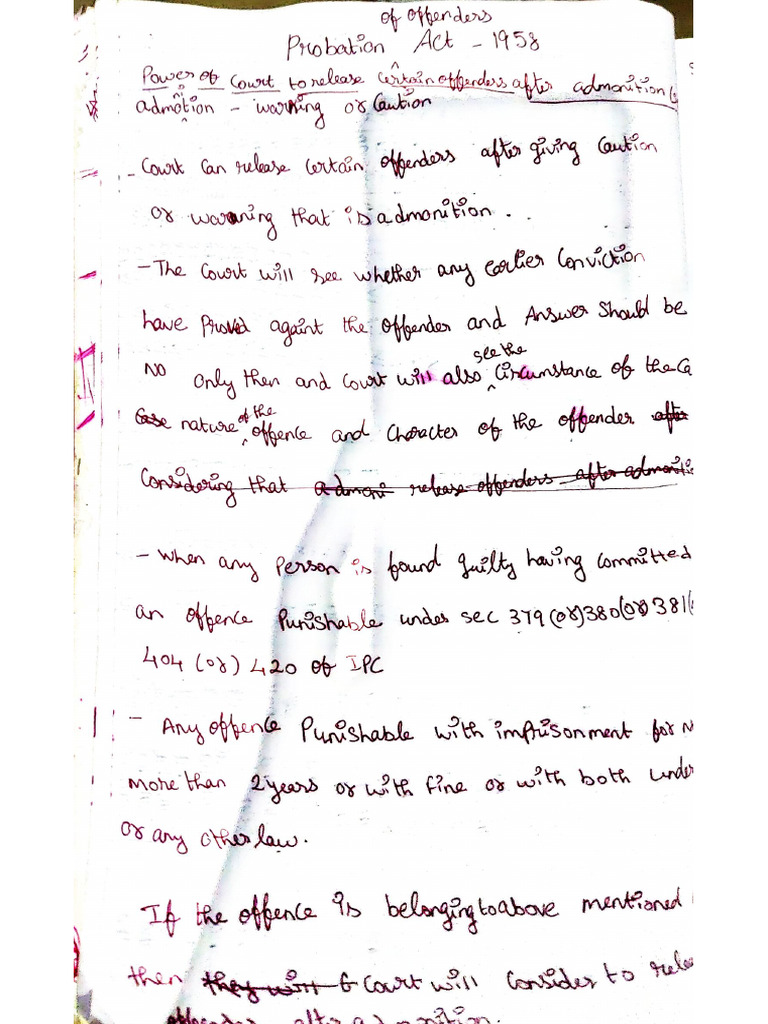 of offenders
Probation Act - 1958
Power of Court to release Certain offenders after admonition
admotion - warning or Caution
- Court Can release Certain offenders after giving Caution
or warning that is admonition.
- The Court will see whether any earlier Conviction
have Proved againt the offender and Answer should be
NO Only then and Court will also see the Circumstance of the Ca
Case nature of the offence and Character of the offender after
Considering that admoni release offenders after admoniti
- when any Person is found guilty having Committed
an offence Punishable under sec 379 (or) 380 (or) 381 (
404 (or) 420 of IPC
- Any offence Punishable with imprisonment for N
more than 2 years or with fine or with both under
or any other law.
If the offence is belonging to above mentioned
then they will Court will Consider to relea
offender after admonition.